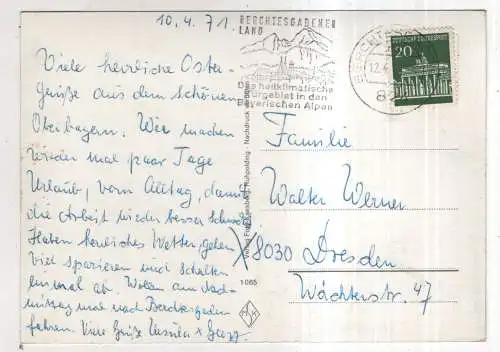 10.4.71.
BERCHTESGADENER
LAND
Das heilklimatische
Kurgebiet in den
Bayerischen Alpen
DEUTSCHE BUNDESPOST
20
Viele herrliche Oster-
grüße aus dem schönen
Oberbayern. Wir machen
wieder mal paar Tage
Urlaub, vom Alltag, damit
die Arbeit wieder besser schmeckt
Haben herrliches Wetter, gehen
viel spazieren und schalten
ein mal ab. Wollen am Nach-
mittag mal nach Berchtesgaden
fahren. Viele Grüße Ursula +
Familie
Walter Werner
X 8030 Dresden
Wächterstr. 47
Ruhpolding - Nachdruck
1065